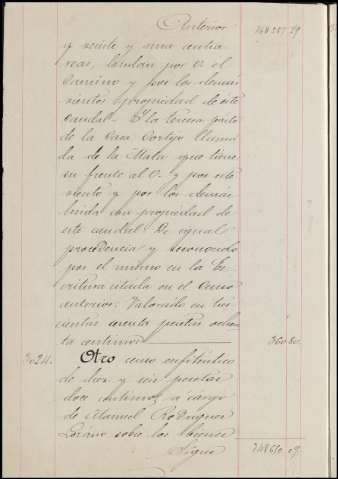 Anterior 748.287.29
y veinte y una centia-
reas, lindan por O. el
camino y por los demas
vientos propiedad de este
caudal. Y la tercera parte
de la Casa Cortijo llama-
da de la Mata que tiene
su frente al O. y por este
viento y por los demás
linda con propiedad de
este caudal. De igual
procedencia y reconocido
por el mismo en la Es-
critura citada en el Censo
anterior: Valorado en tres-
cientas sesenta pesetas ochen-
ta centimos 360.80.
No 24. Otro censo enfiteutico
de diez y seis pesetas
doce centimos, a cargo
de Manuel Rodriguez
Lozano sobre los bienes
Sigue 748.650.09.